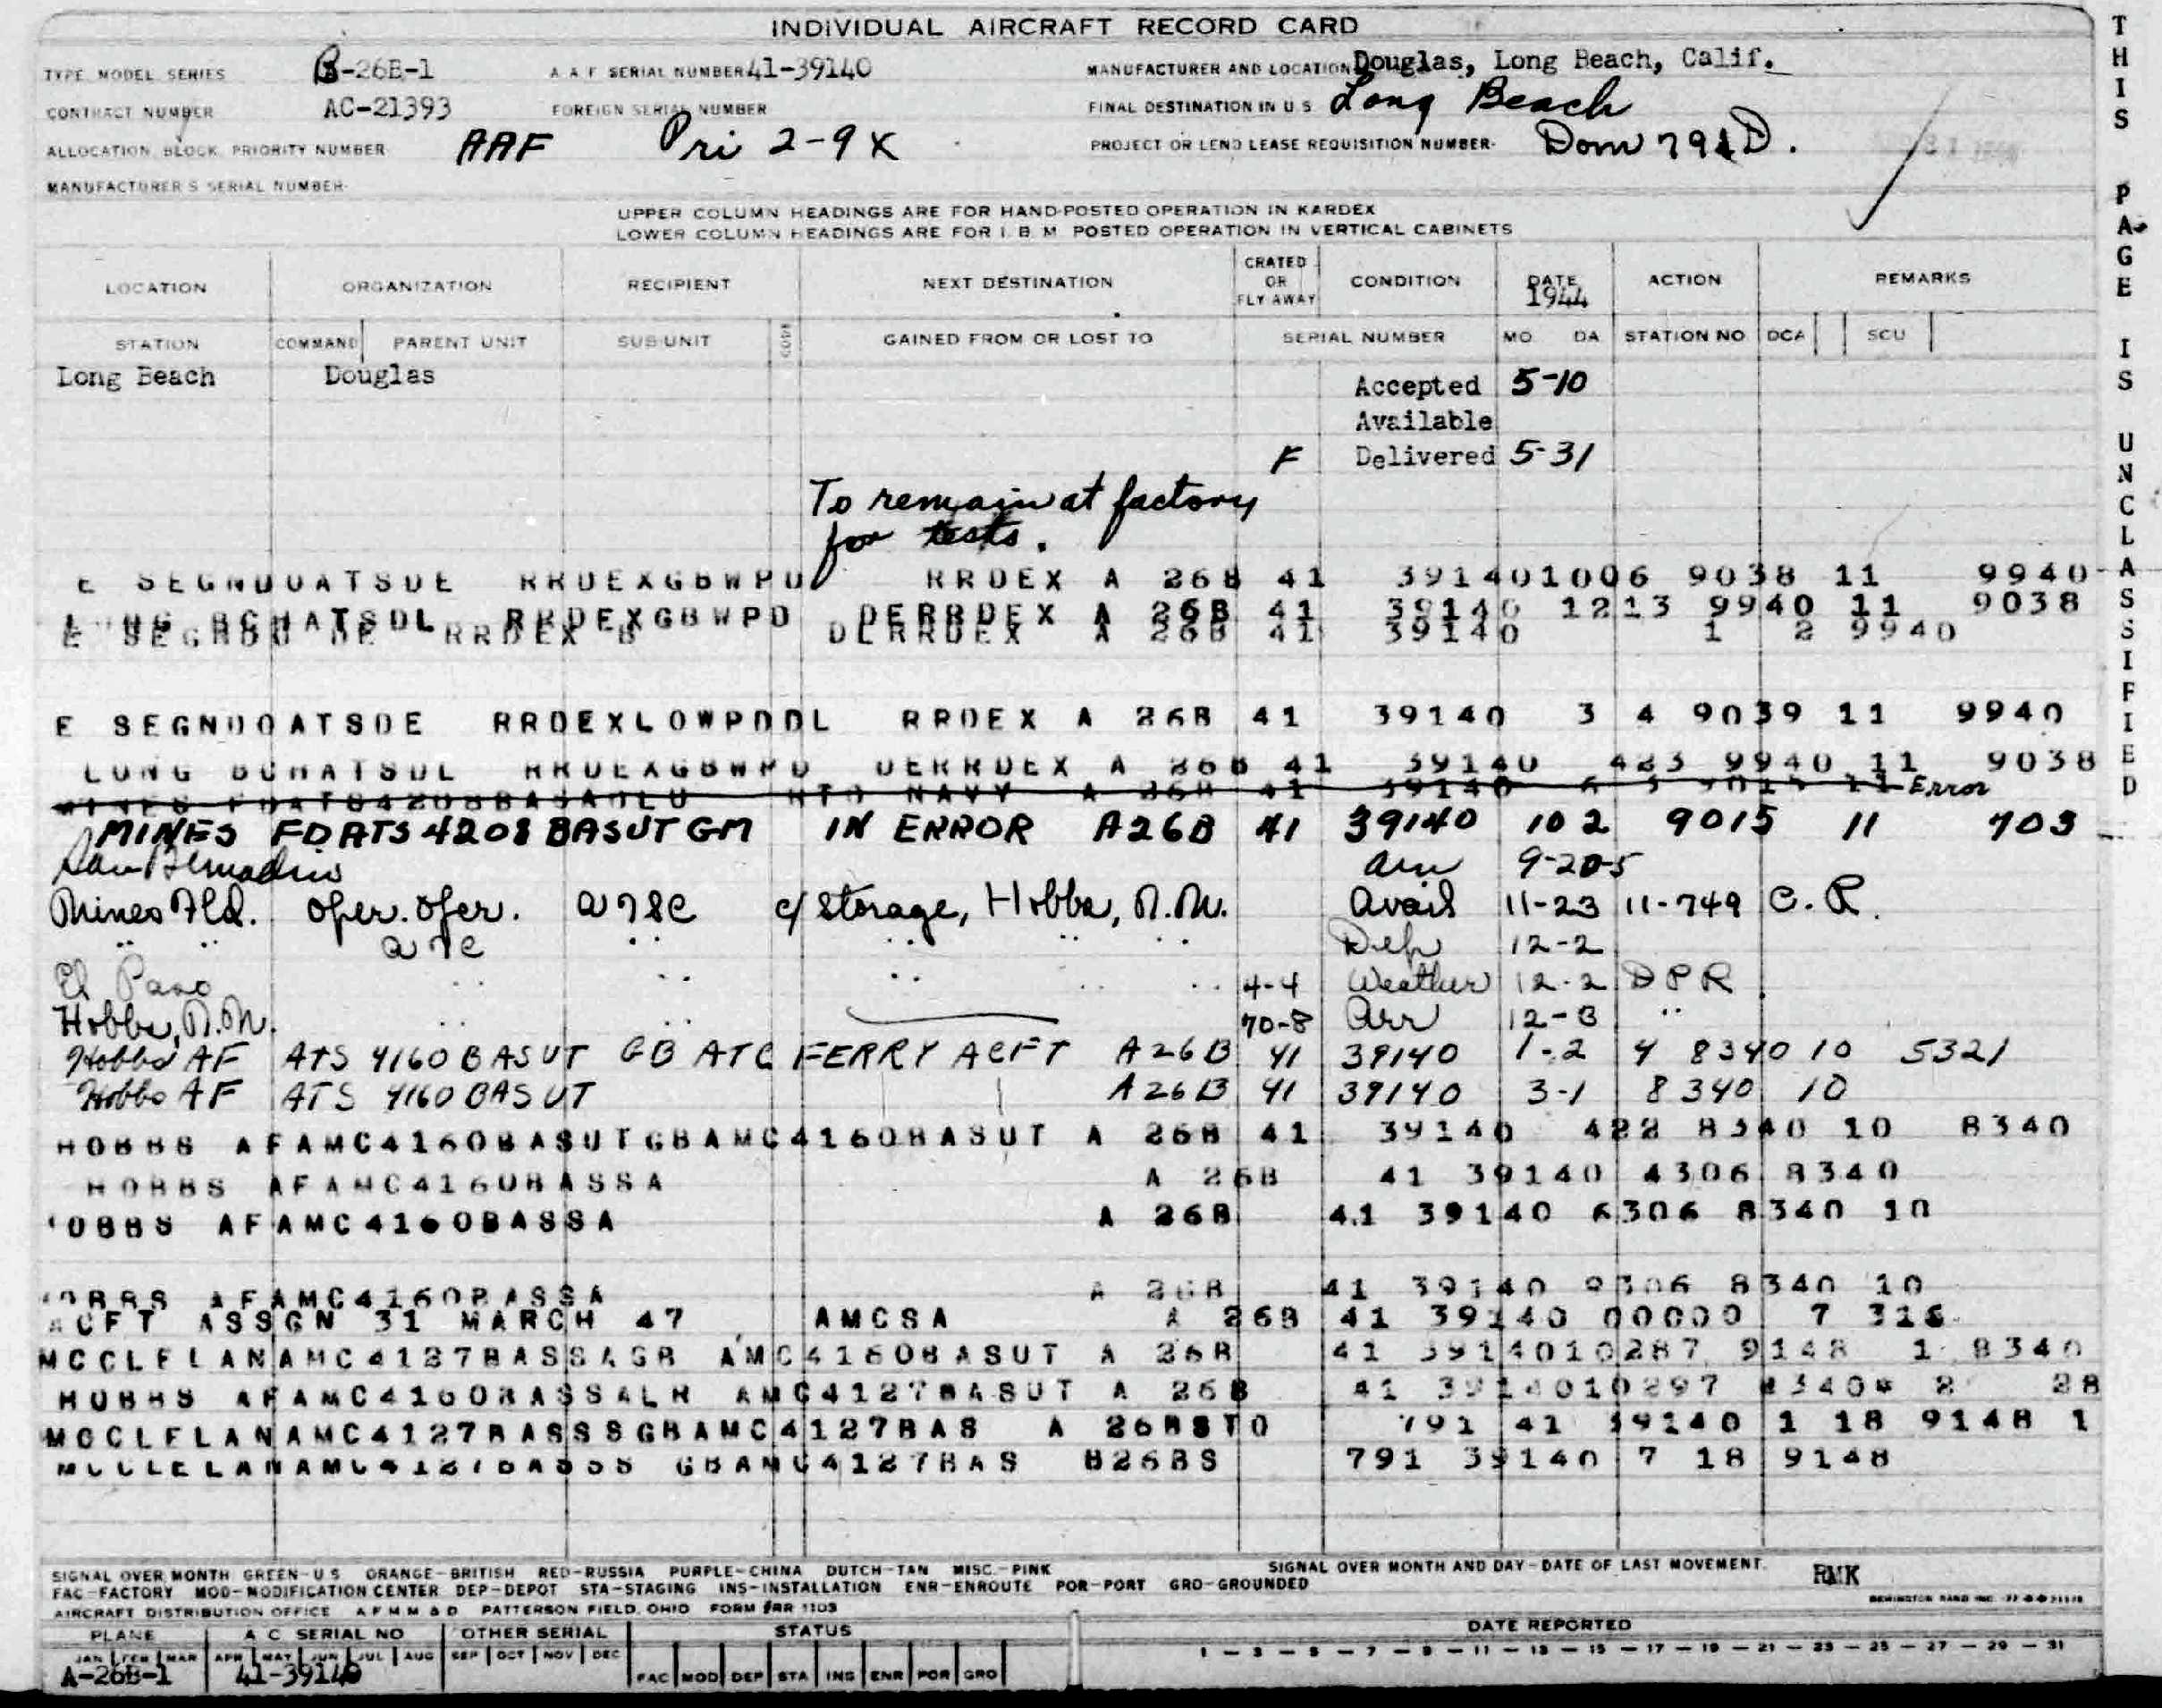 INDIVIDUAL AIRCRAFT RECORD CARD
TYPE MODEL SERIES B-26B-1 A A F SERIAL NUMBER 41-39140 MANUFACTURER AND LOCATION Douglas, Long Beach, Calif.
CONTRACT NUMBER AC-21393 FOREIGN SERIAL NUMBER FINAL DESTINATION IN U.S. Long Beach
ALLOCATION BLOCK PRIORITY NUMBER AAF Pri 2-9X PROJECT OR LEND LEASE REQUISITION NUMBER Dom
MANUFACTURER'S SERIAL NUMBER
UPPER COLUMN HEADINGS ARE FOR HAND-POSTED OPERATION IN KARDEX
LOWER COLUMN HEADINGS ARE FOR I. B. M. POSTED OPERATION IN VERTICAL CABINETS
LOCATION ORGANIZATION RECIPIENT NEXT DESTINATION CRATED OR FLY AWAY CONDITION DATE 1944 ACTION REMARKS
STATION COMMAND PARENT UNIT SUB-UNIT CODE GAINED FROM OR LOST TO SERIAL NUMBER MO DA STATION NO DCA SCU
Long Beach Douglas Accepted 5-10
Available
F Delivered 5-31
To remain at factory
for tests.
E SEGNDOATSDE RRDEXGBWPD RRDEX A 26B 41 391401006 9038 11 9940
LONG BCHATSDL RRDEXGBWPD DERRDEX A 26B 41 39140 1213 9940 11 9038
E DE RRDEX DERRDEX A 26B 41 39140 1 2 9940
E SEGNDOATSDE RRDEXLOWPDDL RRDEX A 26B 41 39140 3 4 9039 11 9940
LONG BCHATSDL RRDEXGBWPD DERRDEX A 26B 41 39140 423 9940 11 9038
MINES NAVY A 26B 41 39140 Error
MINES FDATS4208BASUTGM IN ERROR A26B 41 39140 102 9015 11 703
San Bernadino Arr 9-20-5
Mines Fld. oper. ofer. c/ Storage, Hobbs, N.M. Avail 11-23 11-749 C.R.
" " ATC " " " " Dep 12-2
El Paso " " " " " 4-4 Weather 12-2 DPR
Hobbs, N.M. " " 70-8 Arr "
Hobbs AF ATS 4160 BASUT GB ATC FERRY ACFT A26B 41 39140 1-2 4 8340 10 5321
Hobbs AF ATS 4160 BASUT A26B 41 39140 3-1 8340 10
HOBBS AFAMC4160BASUTGBAMC4160BASUT A 26B 41 39140 422 8340 10 8340
HOBBS AFAMC4160BASSA A 26B 41 39140 4306 8340
OBBS AFAMC4160BASSA A 26B 41 39140 6306 8340 10
OBBS AFAMC4160BASSA A 26B 41 39140 9306 8340 10
ACFT ASSGN 31 MARCH 47 AMCSA A 26B 41 39140 00000 7 316
MCCLELANAMC4127BASSAGB AMC4160BASUT A 26B 41 3914010287 9148 1 8340
HOBBS AFAMC4160BASSALR AMC4127BASUT A 26B 41 3914010297 8340 2 28
MCCLELANAMC4127BASSSGBAMC4127BAS A 26BSTO 791 41 39140 1 18 9148 1
MCCLELANAMC4127BASSS GBAMC4127BAS B26BS 791 39140 7 18 9148
SIGNAL OVER MONTH GREEN-U S ORANGE-BRITISH RED-RUSSIA PURPLE-CHINA DUTCH-TAN MISC.-PINK SIGNAL OVER MONTH AND DAY-DATE OF LAST MOVEMENT. RMK
FAC-FACTORY MOD-MODIFICATION CENTER DEP-DEPOT STA-STAGING INS-INSTALLATION ENR-ENROUTE POR-PORT GRO-GROUNDED
AIRCRAFT DISTRIBUTION OFFICE A F M M & D PATTERSON FIELD, OHIO FORM 1103 REMINGTON RAND INC.
PLANE A C SERIAL NO OTHER SERIAL STATUS DATE REPORTED
JAN FEB MAR APR MAY JUN JUL AUG SEP OCT NOV DEC 1 - 3 - 5 - 7 - 9 - 11 - 13 - 15 - 17 - 19 - 21 - 23 - 25 - 27 - 29 - 31
A-26B-1 41-39140 FAC MOD DEP STA INS ENR POR GRO
THIS PAGE IS UNCLASSIFIED